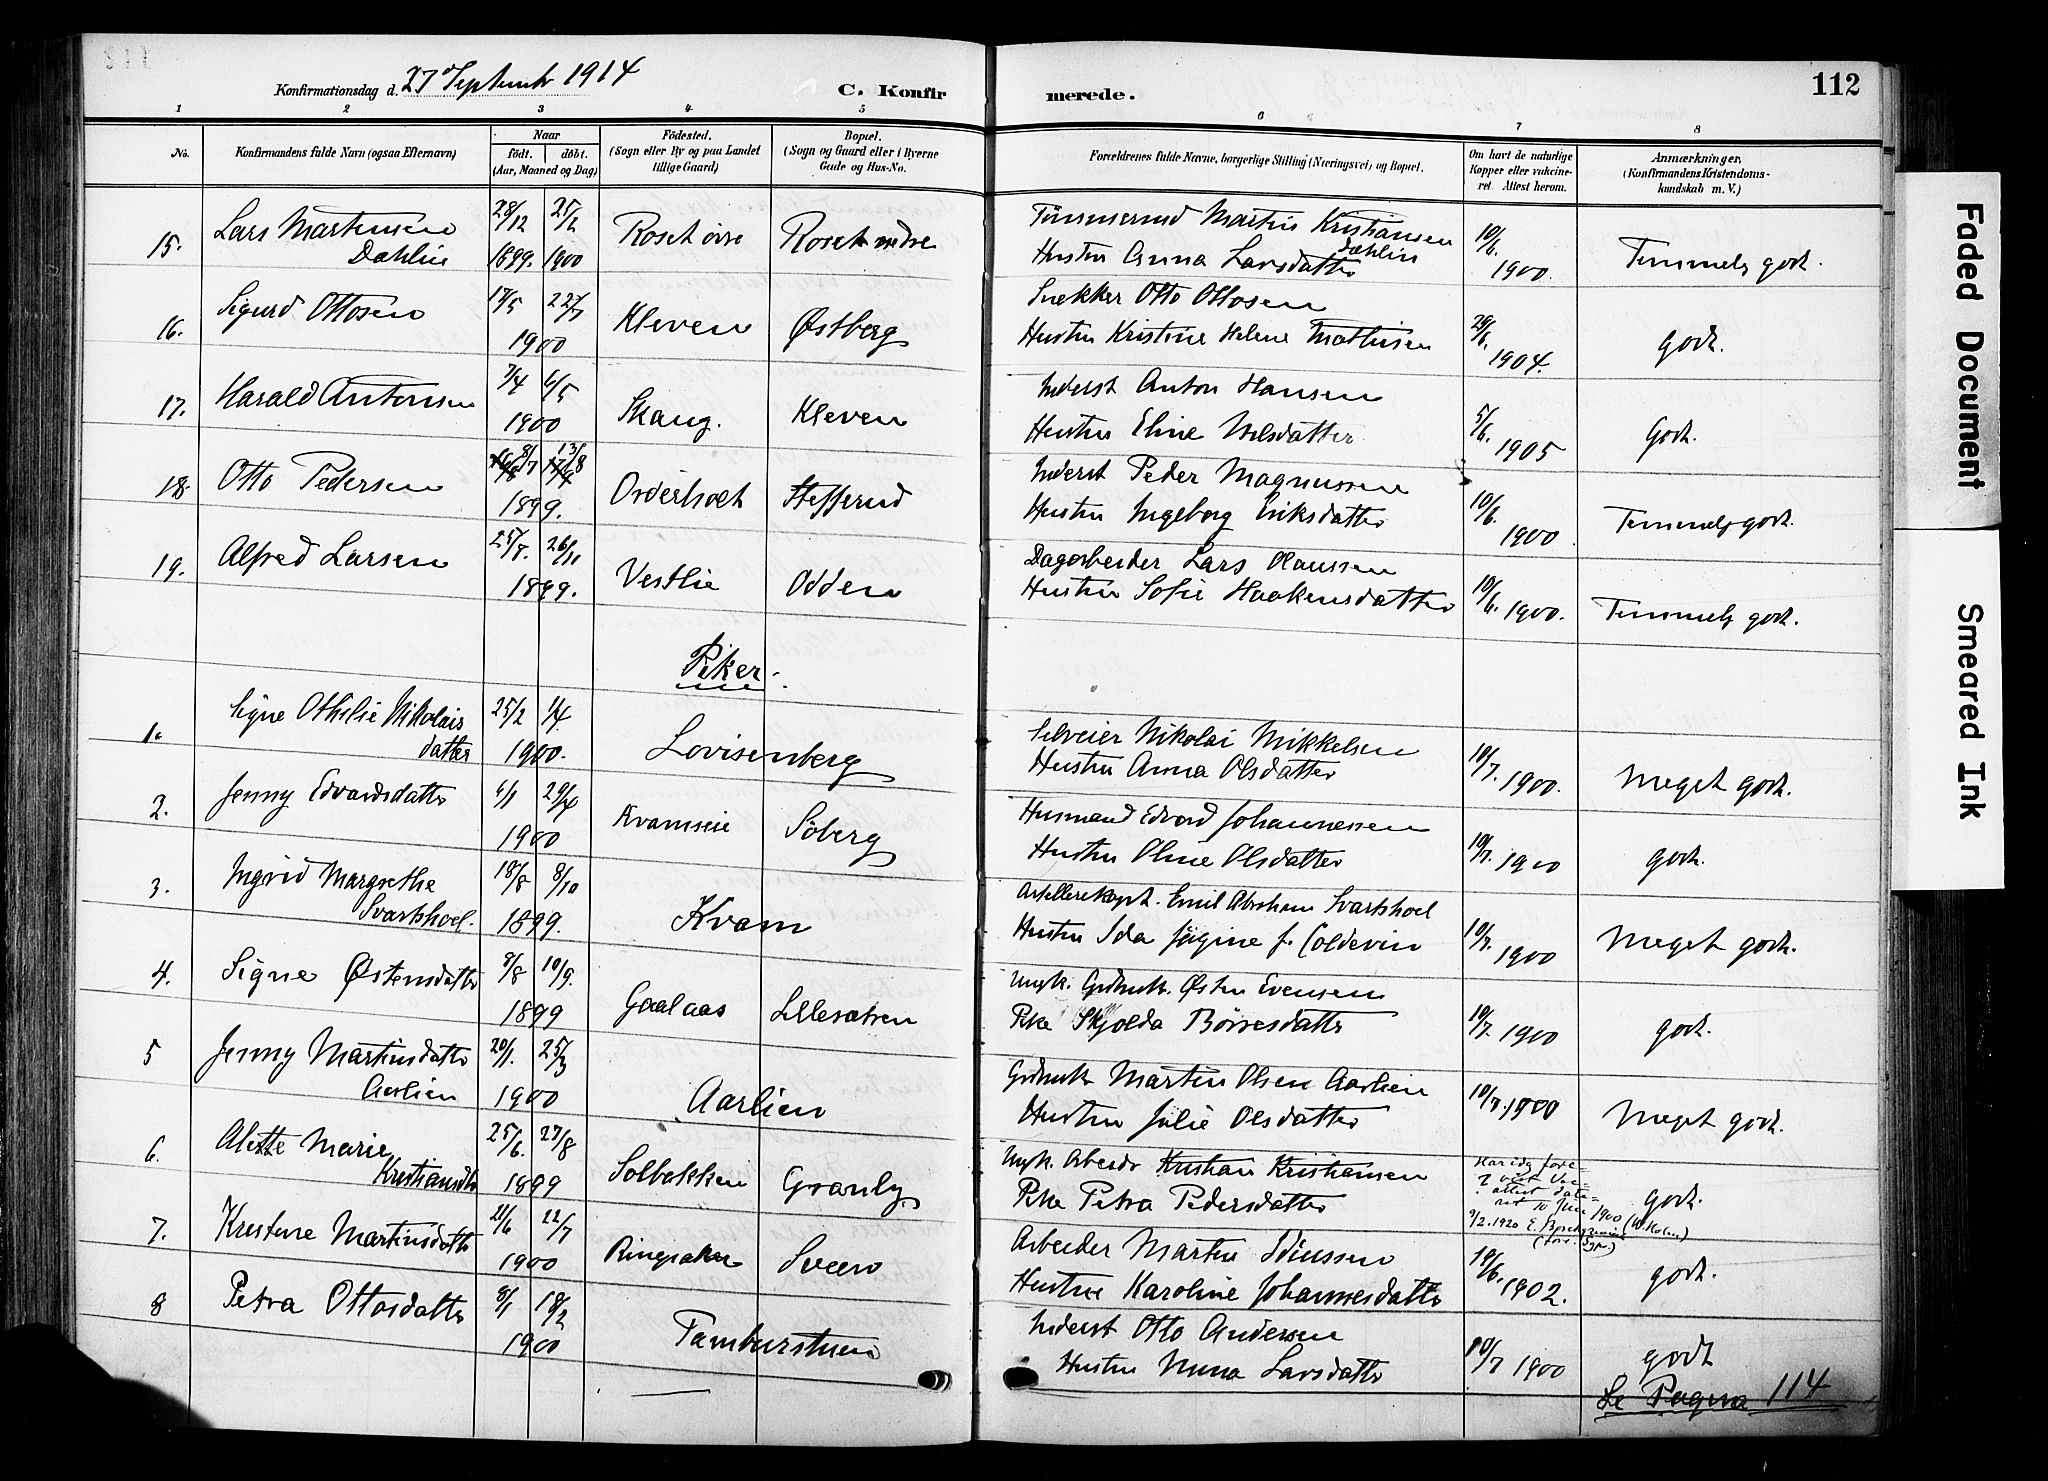 112
Konfirmationsdag d. 27 Septemb 1914
C. Konfirmerede.
1 2 3 4 5 6 7 8
No.
Konfirmandens fulde Navn (ogsaa Efternavn)
Naar
födt. döbt.
(Aar, Maaned og Dag)
Födested.
(Sogn eller By og paa Landet
tillige Gaard)
Bopæl.
(Sogn og Gaard eller i Byerne
Gade og Hus-No.
Forældrenes fulde Navne, borgerlige Stilling (Næringsvei) og Bopæl.
Om havt de naturlige
Kopper eller vakcine-
ret. Attest herom.
Anmærkninger,
(Konfirmandens Kristendoms-
kundskab m. V.)
15. Lars Martinsen 28/12 25/2 Roset øvre Roset nedre Tømmermd Martin Kristiansen 10/6.
Dæhlin 1899. 1900 Hustru Anna Larsdatter Dæhlin 1900. Temmelig godt.
16. Sigurd Ottosen 17/5 22/7 Kleven Østberg Snekker Otto Ottosen
1900 Hustru Kristine Helene Mathisen 29/6. 1904. godt.
17. Harald Antonsen 7/4 6/5 Skaug. Kleven Inderst Anton Hansen
1900 Hustru Eline Nilsdatter 5/6. 1905 Godt.
18. Otto Pedersen 8/7 13/8 Ovderhoet Stefferud Inderst Peder Magnussen
1899. Hustru Ingeborg Eriksdatter 10/6. 1900 Temmelig godt.
19. Alfred Larsen 25/7. 26/11 Vestlie Odden Dagarbeider Lars Olaussen
1899. Hustru Sofie Haakensdatter 10/6. 1900. Temmelig godt.
Piker.
1. Signe Othilie Nikolais 25/2 1/4. Lovisenberg Selveier Nikolai Mikkelsen
datter 1900. Hustru Anna Olsdatter 10/7. 1900. Meget godt.
2. Jenny Edvardsdatter 6/1 29/4 Kvamseie Søberg Husmand Edvard Johannessen
1900 Hustru Oline Olsdatter 10/7. 1900 godt.
3. Ingrid Margrethe 18/8 8/10 Kvam Artellerekapt. Emil Abraham Svartshoel
Svartshoel. 1899. Hustru Ida Jørgine f. Coldevin 10/7. 1900 Meget godt.
4. Signe Østensdatter 8/8 10/9. Gaalaas Lillesætren Ungk. Grdbruk. Østen Evensen
1899 Pike Skjolda Børresdatter 10/7. 1900 godt.
5 Jenny Martinsdatter 20/1. 25/3 Aarlien Grdbruk Martin Olsen Aarlien
Aarlien 1900 Hustru Julie Olsdatter 10/7. 1900 Meget godt.
6. Alette Marie 25/6. 27/8 Solbakken Granly Ungk. Arbeider Kristian Kristiansen
Kristiansdtr 1899 Pike Petra Pedersdatter godt.
Har idag fore-
attest date-
ret 10 Juni 1900
9/2.1920
7. Kristine Martinsdatter 21/6 22/7 Ringsaker Sveen Arbeider Martin Simssen
1900 Hustru Karoline Johannesdatter 10/6. 1902. godt.
8 Petra Ottosdatter 8/1 18/2 Tamburstuen Inderst Otto Andersen
1900 Hustru Anna Larsdatter 10/7 1900 godt
Se Pagina 114
Faded Document
Smeared Ink